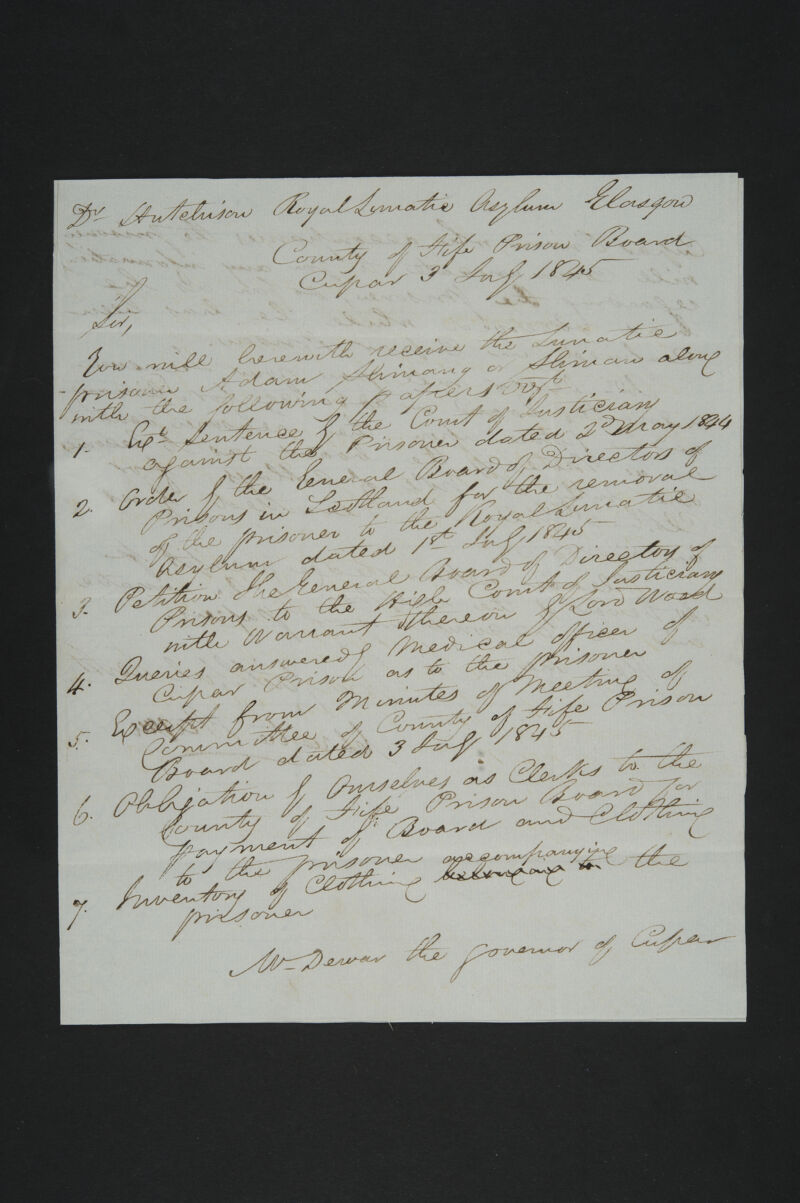 Dr Hutchison Royal Lunatic Asylum Glasgow
County of Fife Prison Board
Cupar 3 July 1845
Sir,
You will herewith receive the Lunatic
prisoner Adam or along
with the following papers viz
1. Ext Sentence of the Court of Justiciary
against the Prisoner dated 2d May 1844
2. Order of the General Board of Directors of
Prisons in Scotland for the removal
of the prisoner to the Royal Lunatic
Asylum dated 1st July 1845
3. Petition The General Board of Directors of
Prisons to the High Court of Justiciary
with Warrant thereon of Lord Wood
4. Queries answered of Medical officer of
Cupar Prison as to the prisoner
5. Excerpt from Minutes of Meeting of
Committee of County of Fife Prison
Board dated 3 July 1845
6. Obligation of Ourselves as Clerks to the
County of Fife Prison Board for
payment of Board and Clothing
to the prisoner
7. Inventory of Clothing accompanying the
prisoner
Mr Dewar the governor of Cupar